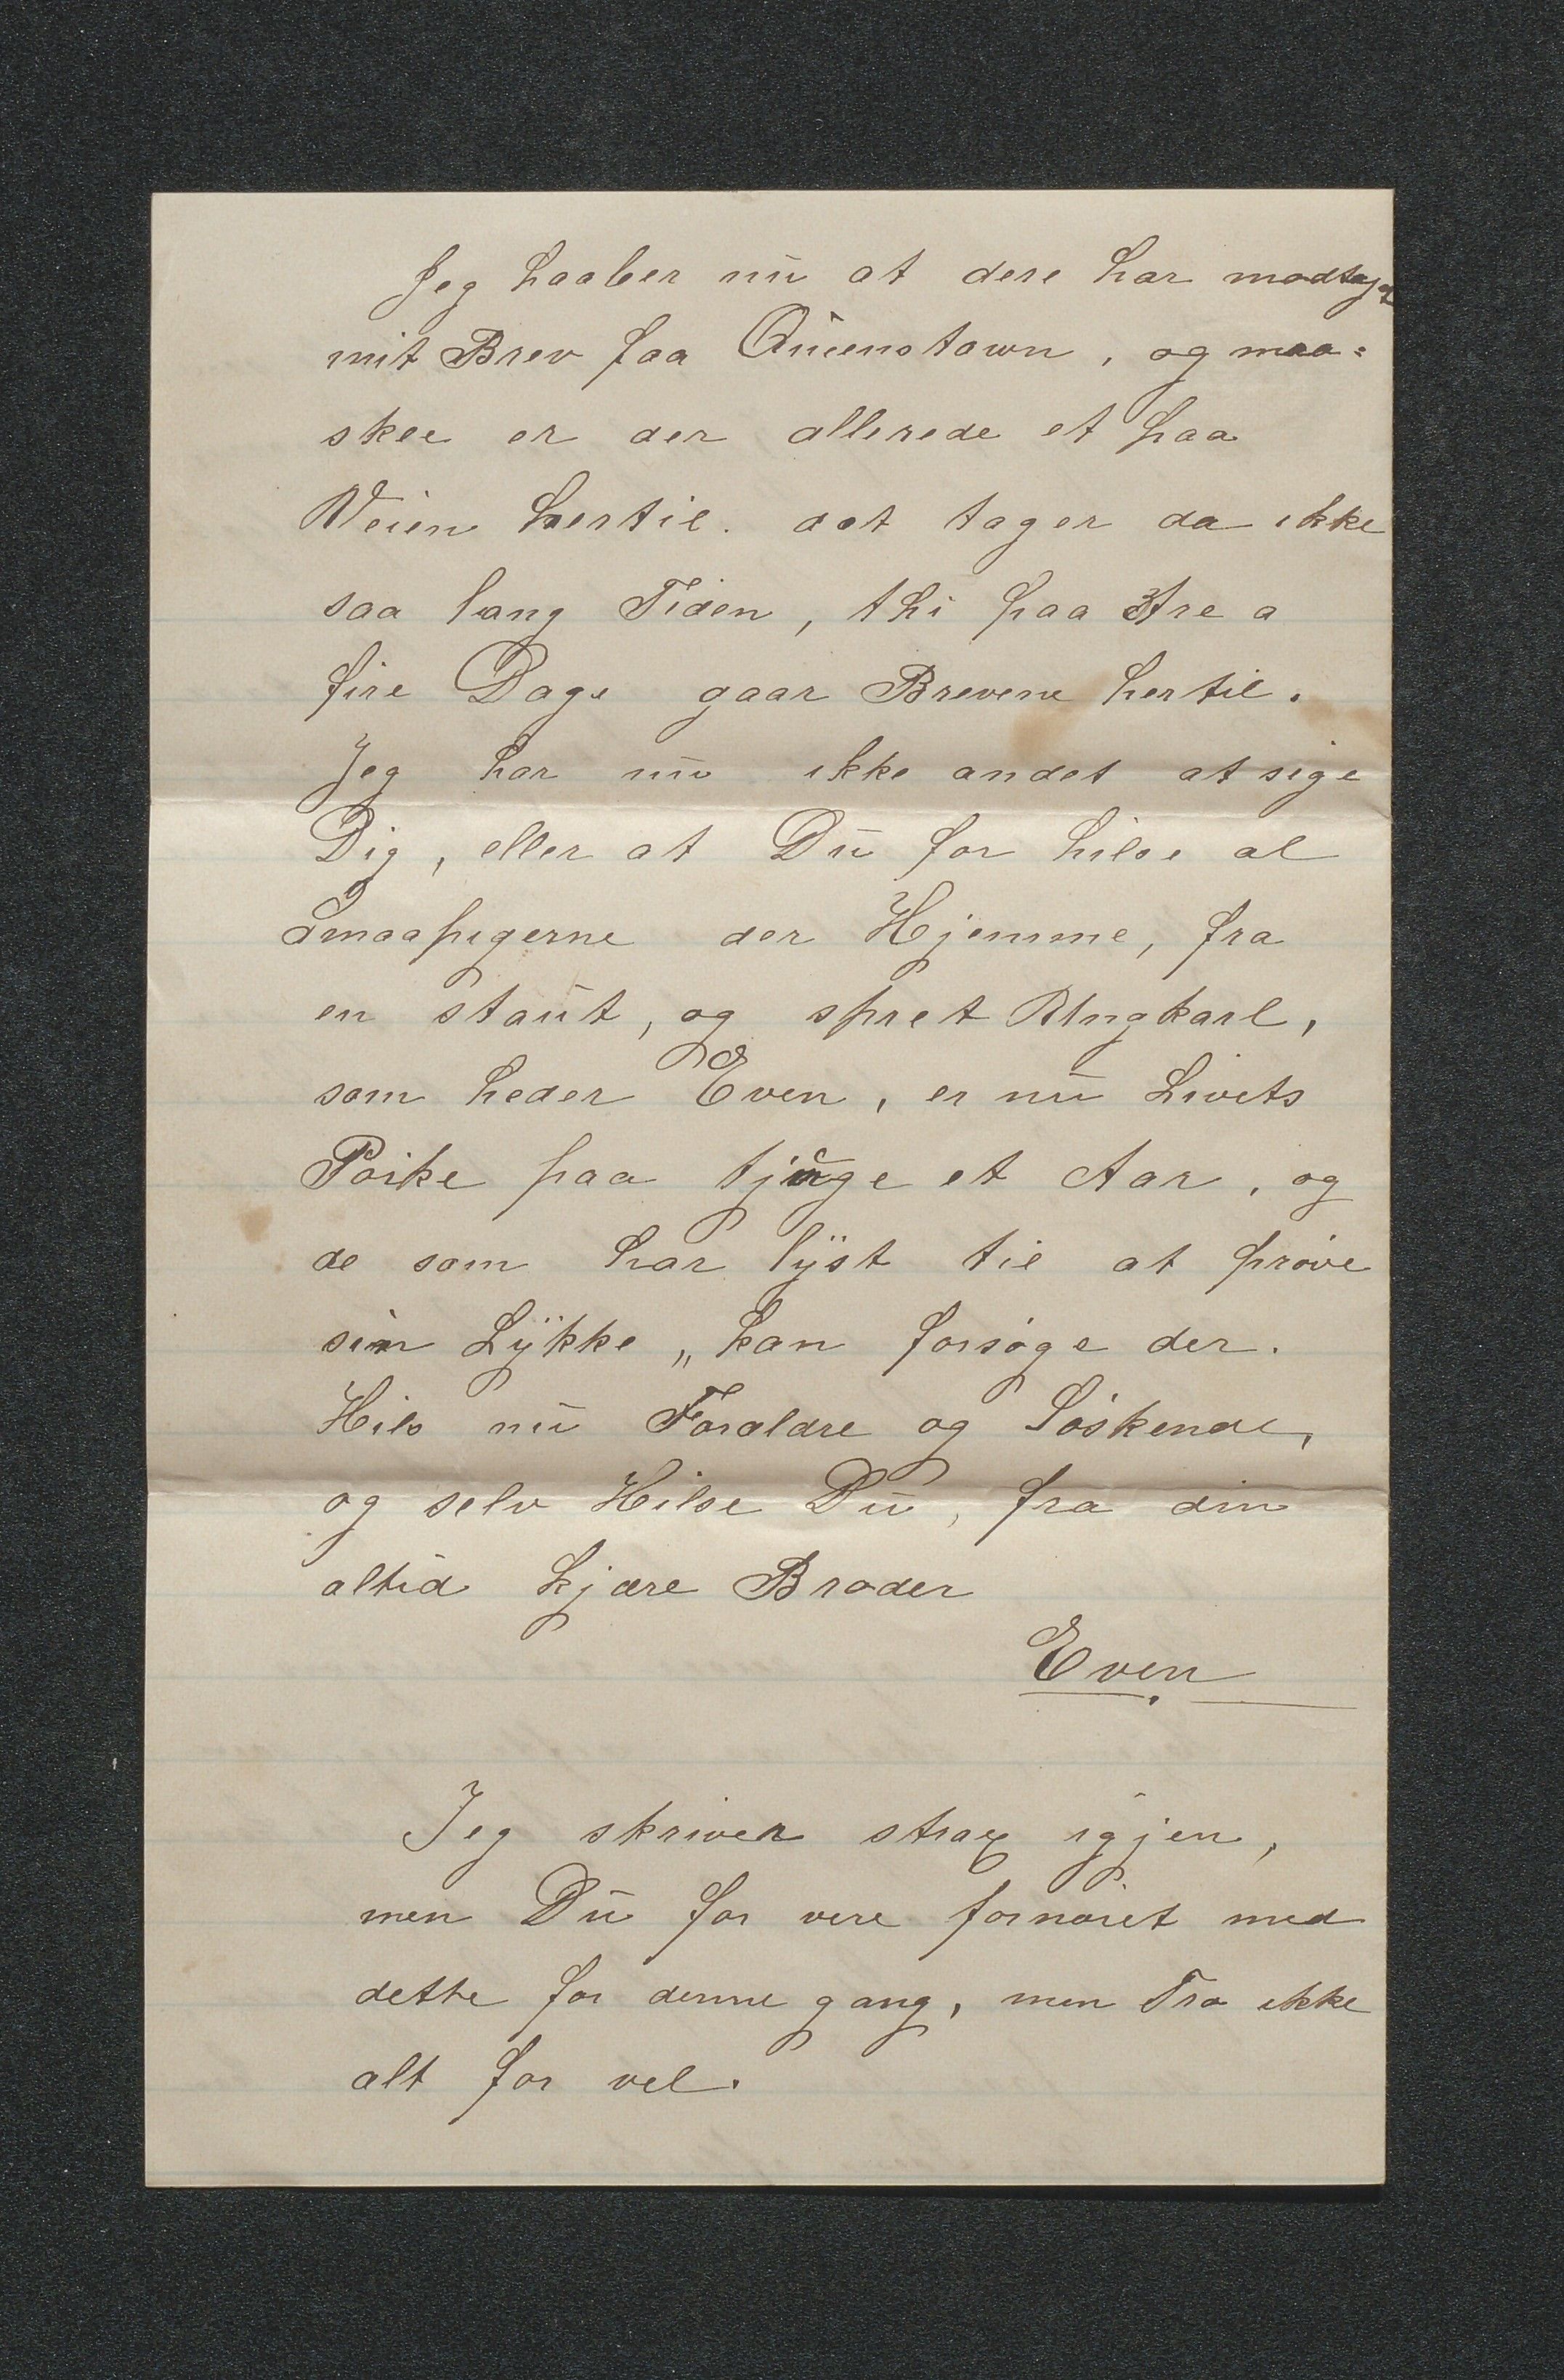 Jeg haaber nu at dere har modtaget
mit Brev faa Queenstown, og maa=
skee er der allerede et paa
Veien hertil. det tager da ikke
saa lang Tiden, thi paa tre a
fire Dage gaar Brevene hertil.
Jeg har nu ikke andet at sige
Dig, eller at Du for hilse al
Smaapigerne der Hjemme, fra
en staut, og spret Ungkarl,
som heder Even, er nu Livets
Poike paa tjuge et Aar, og
de som har lyst til at prøve
sin Lykke „ kan forsøge der.
Hils nu Foraldre og Søskende,
og selv Hilse Du, fra din
altid kjære Broder
Even
Jeg skriver strax igjen,
men Du for vere fornøiet med
dette for denne gang, men Tro ikke
alt for vel.